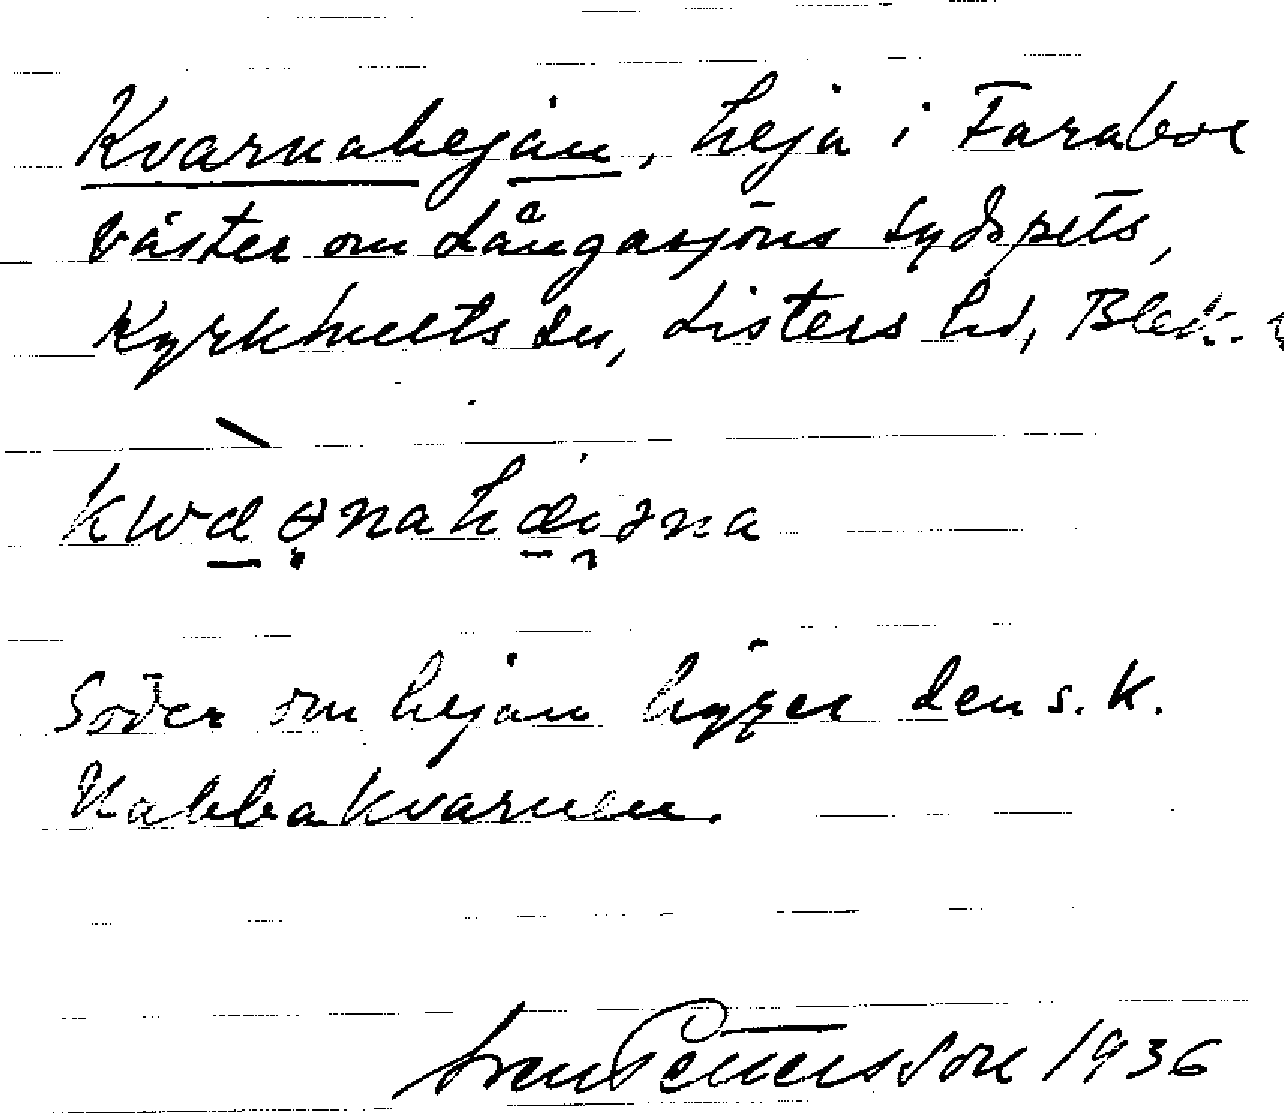 Kvarnahejan, heja i Farabol
väster om Långasjöns sydspets,
Kyrkhults sn, Listers hd, Blek.
kwɑənahæiəna
Söder om hejan ligger den s.k.
Nabbakvarnen.
Sven Pettersson 1936